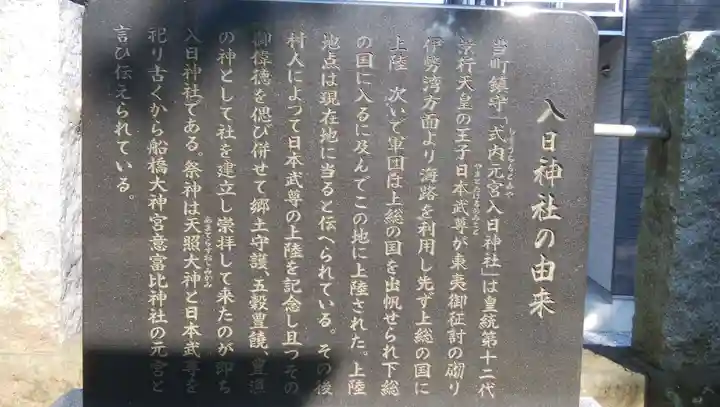 入日神社の由来
当町鎮守「式内元宮入日神社」は皇統第十二代
しきうちもとみや
景行天皇の王子日本武尊が東夷御征討の砌り
やまとたけるのみこと
伊勢湾方面より海路を利用し先ず上総の国に
上陸 次いで軍団は上総の国を出帆せられ下総
の国に入るに及んでこの地に上陸された。上陸
地点は現在地に当ると伝へられている。その後
村人によつて日本武尊の上陸を記念し且つその
御偉徳を偲び併せて郷土守護、五穀豊饒、豊漁
の神として社を建立し崇拝して来たのが即ち
入日神社である。祭神は天照大神と日本武尊を
あまてらすおおみかみ
祀り古くから船橋大神宮意富比神社の元宮と
言ひ伝えられている。